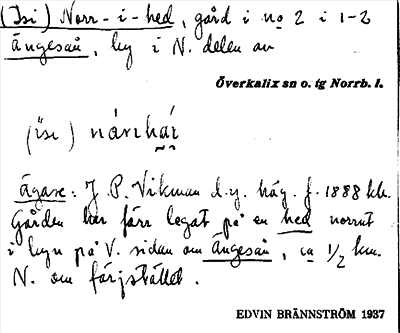 (Isi) Norr-i-hed, gård i no 2 i 1-2
Ängesån, by i N. delen av
Överkalix sn o. tg Norrb. l.
Ägare: J. P. Vikman d.y. häg. f. 1888 kk.
Gården har förr legat på en hed norrut
i byn på V. sidan om Ängesån, ca 1/2 km.
N. om färjstället.
EDVIN BRÄNNSTRÖM 1937